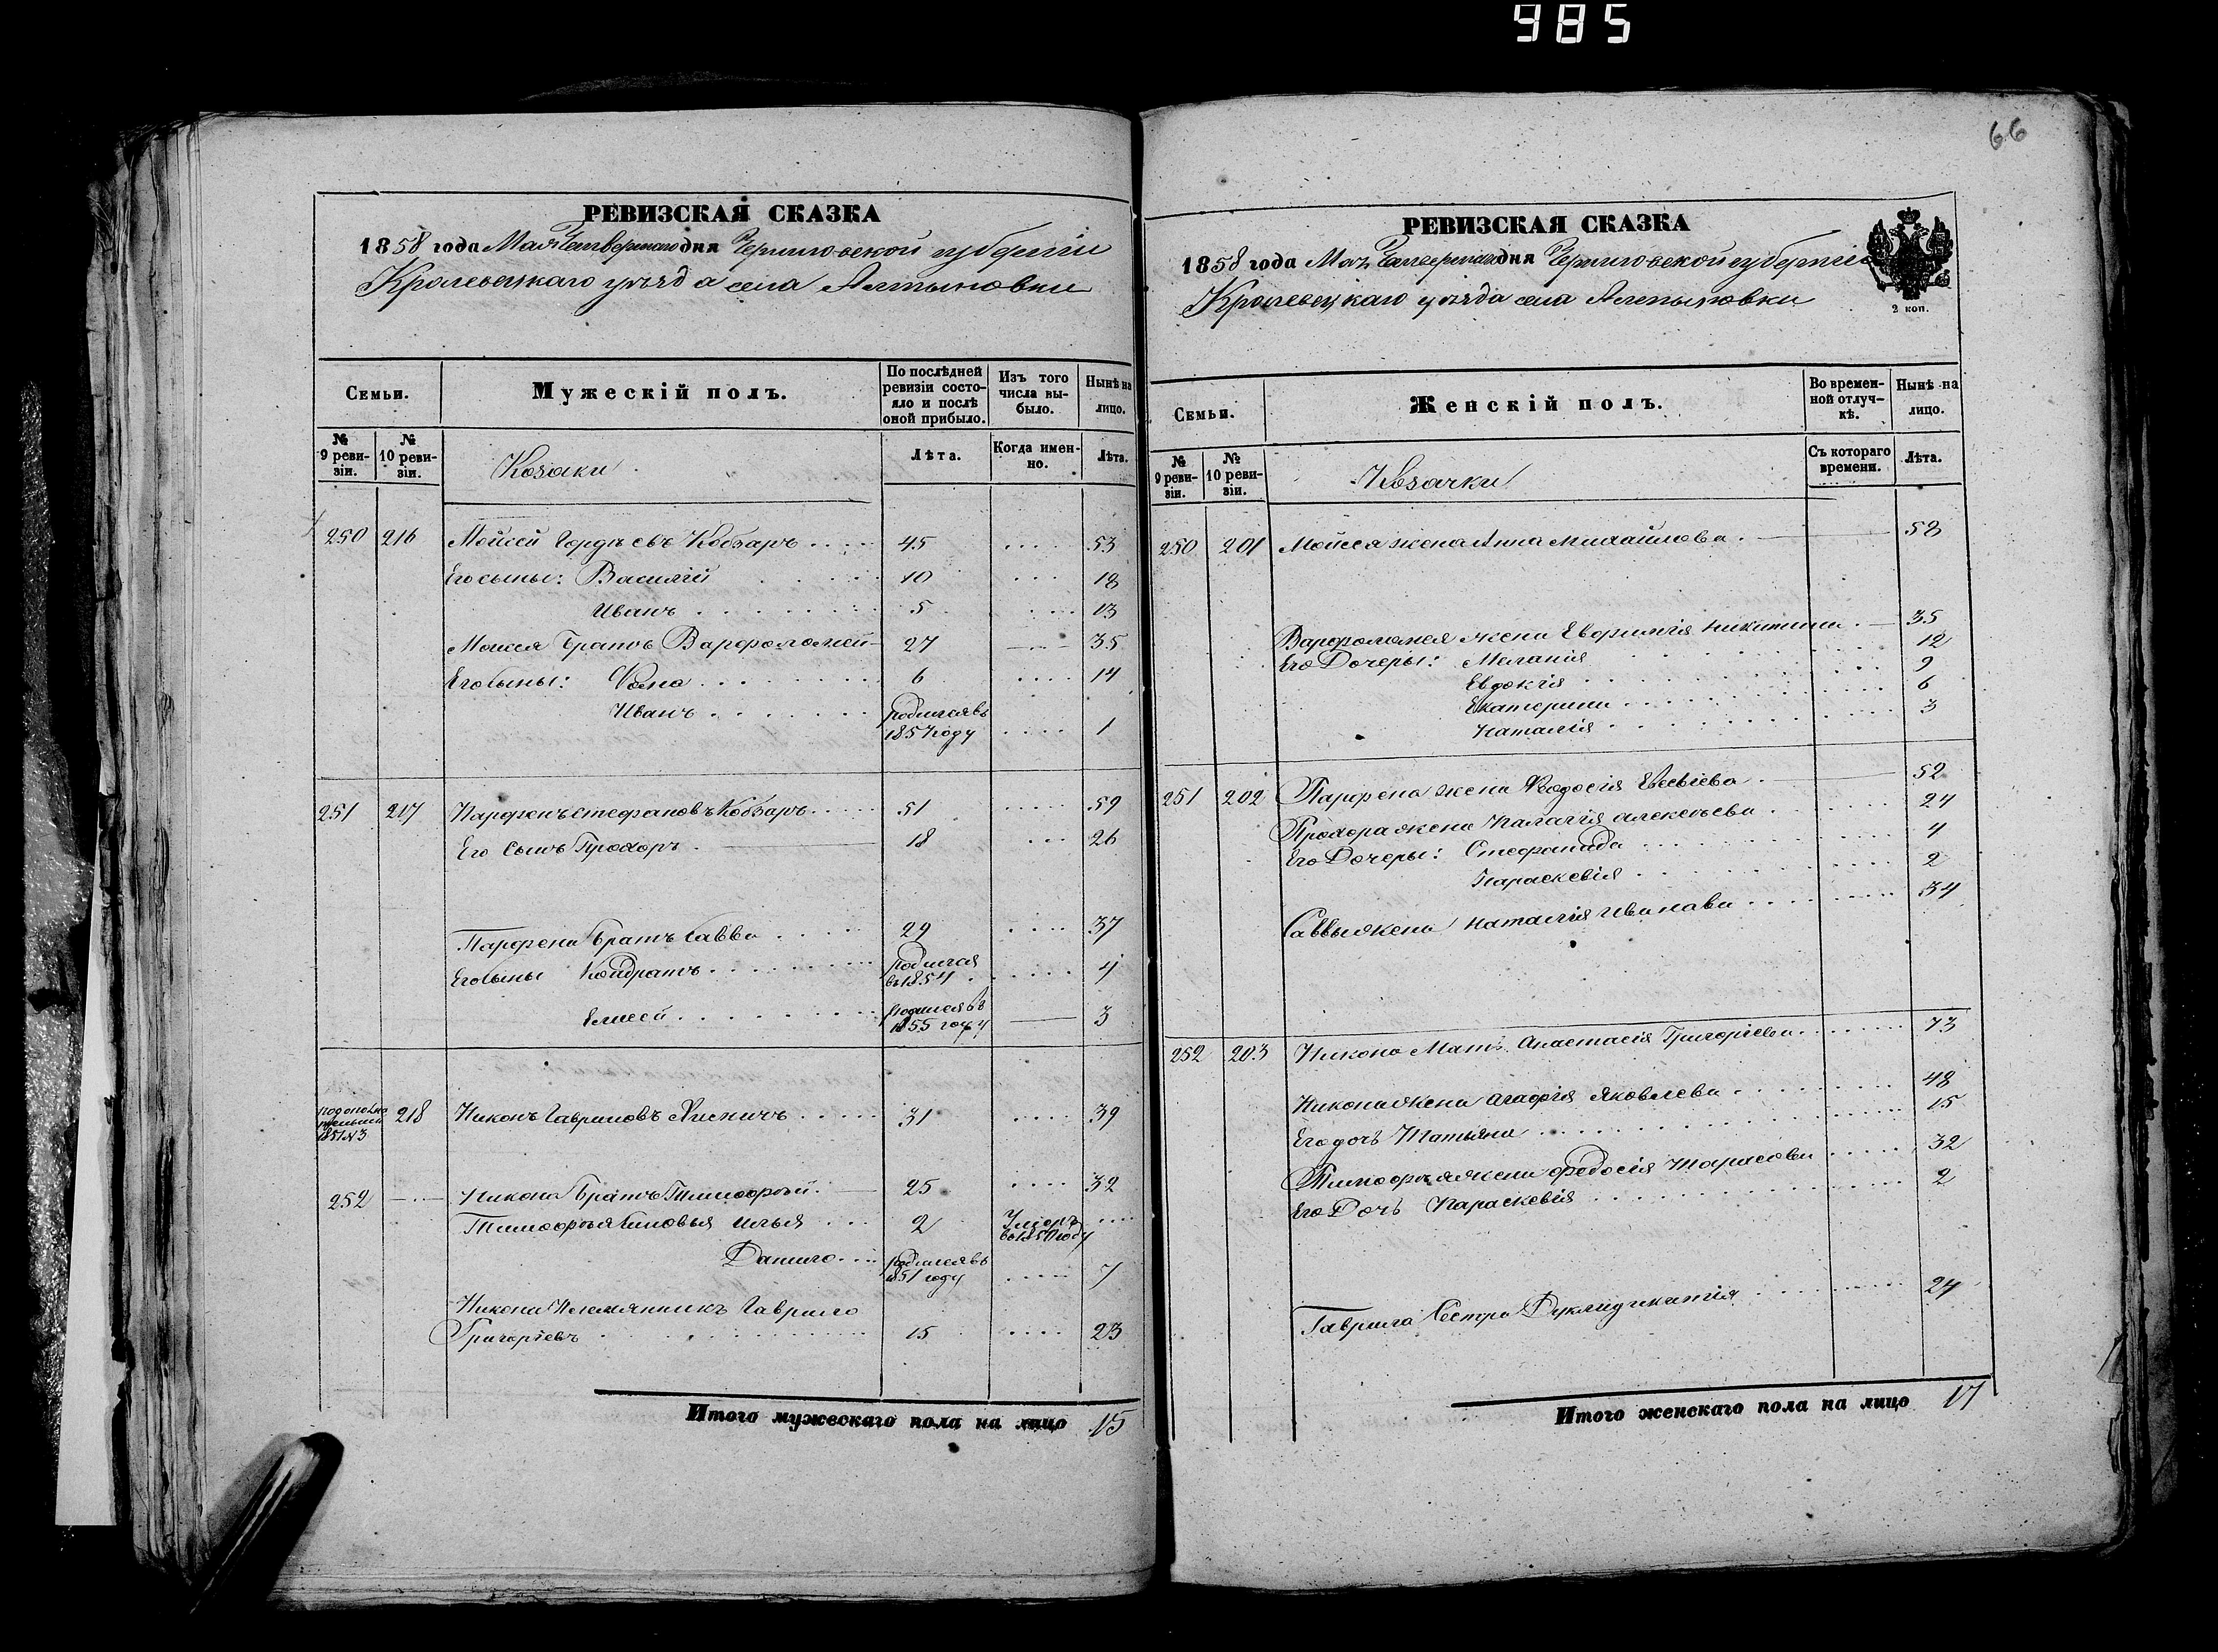 985
66
РЕВИЗСКАЯ СКАЗКА
1858 года Мая Четвертаго дня Черниговской губерніи
Кролевецкаго уѣзда села Алтыновки
Семьи.
Мужескій полъ.
По послѣдней ревизіи состояло и послѣ оной прибыло.
Изъ того числа выбыло.
Нынѣ на лицо.
№ 9 ревизіи.
№ 10 ревизіи.
Козаки
Лѣта.
Когда именно.
Лѣта.
250 216 Мойсей Гордѣевъ Кобзаръ 45 53
Его сыны: Василій 10 18
Иванъ 5 13
Мойсея Братъ Варфоломей 27 35
Его сыны: Фома 6 14
Иванъ родился въ 1857 году 1
251 217 Парфенъ Стефановъ Кобзаръ 51 59
Его Сынъ Прохоръ 18 26
Парфена Братъ Савва 29 37
Его сыны Кондратъ родился въ 1854 4
Елисей родился въ 1855 году 3
218 Никонъ Гавриловъ 31 39
1851 № 3
252 Никона Братъ Тимофѣй 25 32
Тимофѣя сыновья Илья 2 Умеръ въ 1850 году
Данило родился въ 1851 году 7
Никона Племянникъ Гаврило
Григоріевъ 15 23
Итого мужескаго пола на лицо 15
РЕВИЗСКАЯ СКАЗКА
1858 года Мая Четвертаго дня Черниговской губерніи
Кролевецкаго уѣзда села Алтыновки
2 коп.
Семьи.
Женскій полъ.
Во временной отлучкѣ.
Нынѣ на лицо.
№ 9 ревизіи.
№ 10 ревизіи.
Козачки
Съ котораго времени.
Лѣта.
250 201 Мойсея жена Анна Михайлова 58
Варфоломея жена Евфимія Никитина 35
Его Дочеры: Меланія 12
Евдокія 9
Екатерина 6
Наталія 3
251 202 Парфена жена Феодосія Евсѣева 52
Прохора жена Палагія Алексѣева 24
Его Дочеры: Стефанида 4
Параскевія 2
Саввы жена Наталія Иванова 34
252 203 Никона Мать Анастасія Григоріева 73
Никона жена Агафія Яковлева 48
Его дочь Татьяна 15
Тимофѣя жена Федосія Тарасова 32
Его Дочь Параскевія 2
Гаврила Сестра 24
Итого женскаго пола на лицо 17